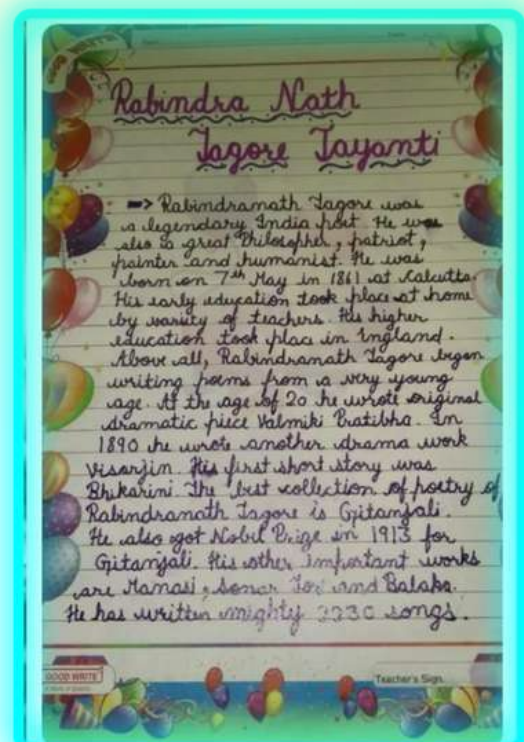 Rabindra Nath
Tagore Jayanti
Rabindranath Tagore was
a legendary India poet. He was
also a great Philosopher, patriot,
painter and humanist. He was
born on 7th May in 1861 at Calcutta.
His early education took place at home
by variety of teachers. His higher
education took place in England.
Above all, Rabindranath Tagore began
writing poems from a very young
age. At the age of 20 he wrote original
dramatic piece Valmiki Pratibha. In
1890 he wrote another drama work
Visarjin. His first short story was
Bhikarini. The best collection of poetry of
Rabindranath Tagore is Gitanjali.
He also got Nobel Prize in 1913 for
Gitanjali. His other important works
are Manasi, Sonar Tori and Balaka.
He has written mighty 2230 songs.
GOOD WRITE
Teacher's Sign.